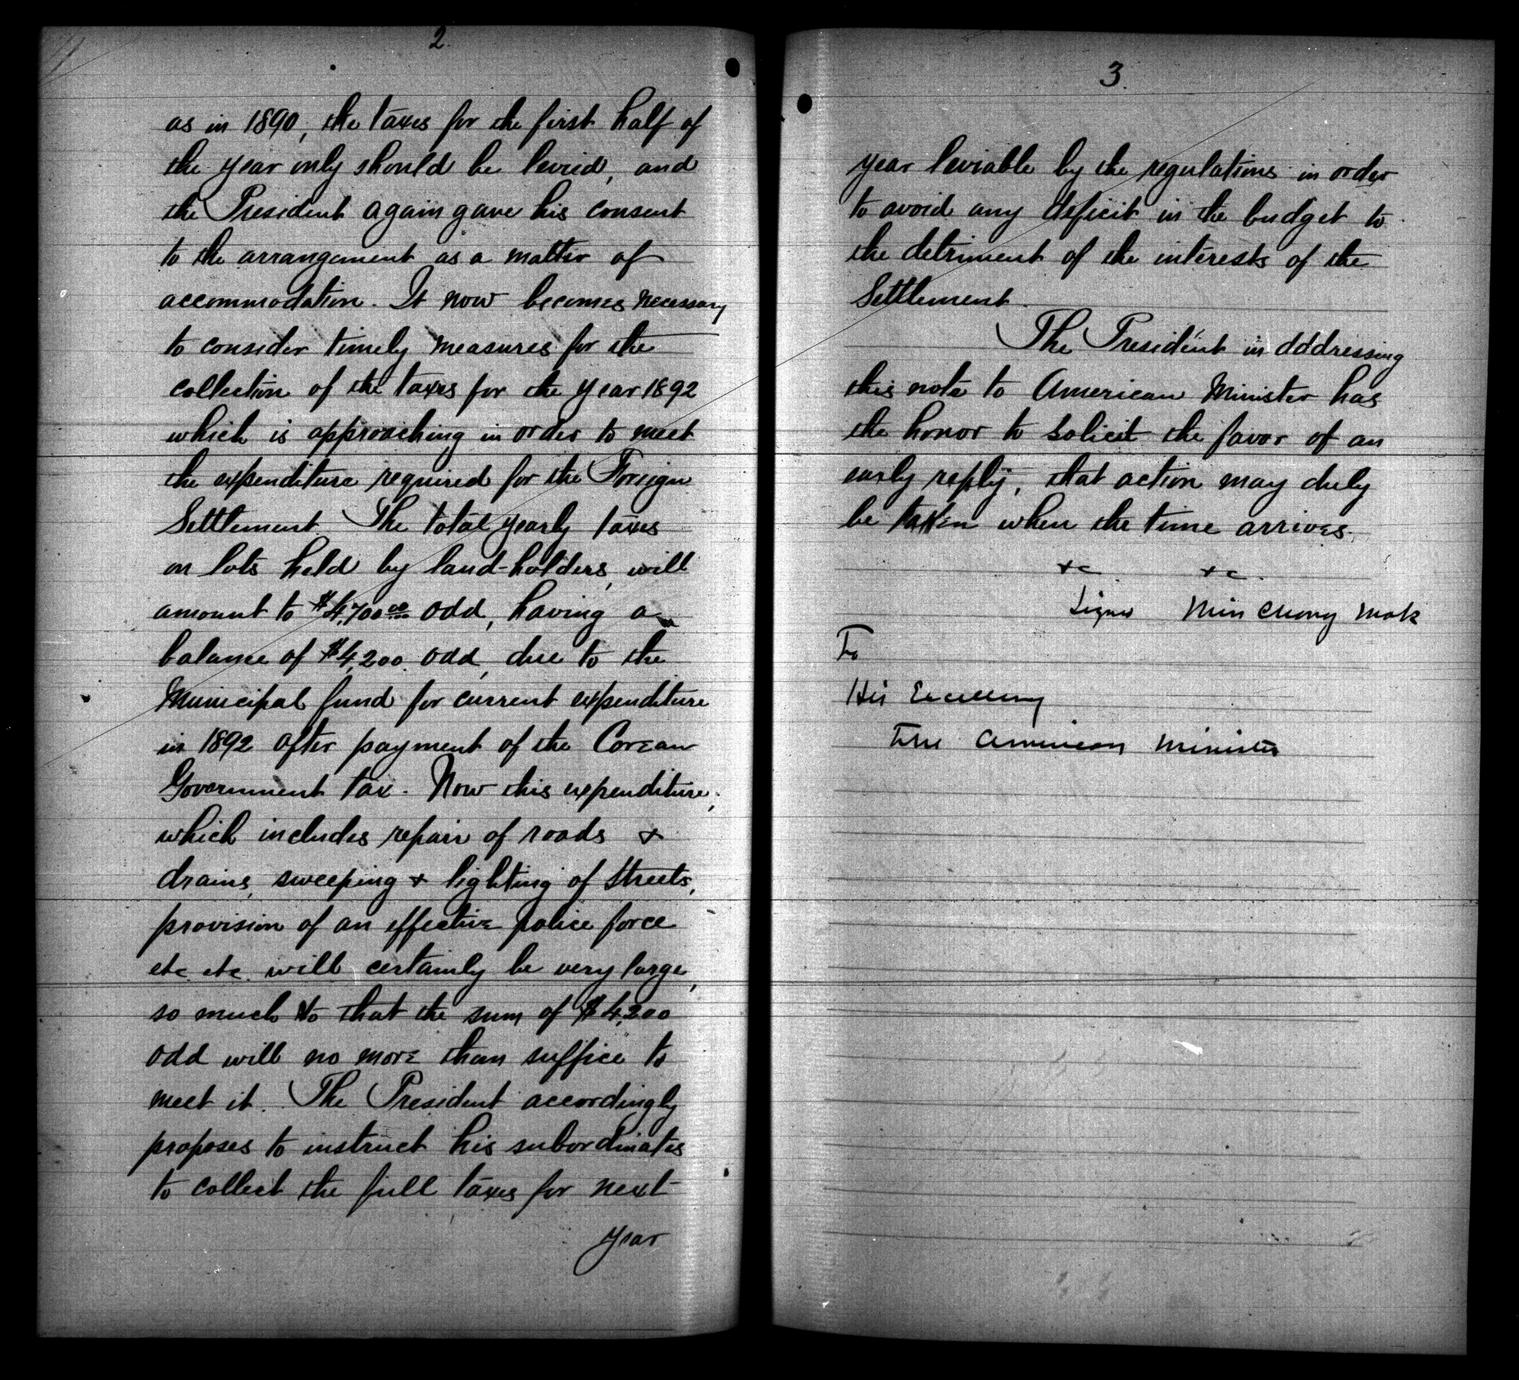 2.
as in 1890, the taxes for the first half of
the year only should be levied, and
the President again gave his consent
to the arrangement as a matter of
accommodation. It now becomes necessary
to consider timely measures for the
collection of the taxes for the year 1892
which is approaching in order to meet
the expenditure required for the Foreign
Settlement. The total yearly taxes
on lots held by land-holders, will
amount to $4,700.00 odd, having a
balance of $4,200. odd, due to the
Municipal fund for current expenditure
in 1892 after payment of the Corean
Government tax. Now this expenditure,
which includes repair of roads &
drains, sweeping & lighting of streets,
provision of an effective police force
etc etc. will certainly be very large,
so much so that the sum of $4,200
odd will no more than suffice to
meet it. The President accordingly
proposes to instruct his subordinates
to collect the full taxes for next
year
3.
year leviable by the regulations in order
to avoid any deficit in the budget to
the detriment of the interests of the
Settlement.
The President in addressing
this note to American Minister has
the honor to solicit the favor of an
early reply, that action may duly
be taken when the time arrives.
&c &c.
Signed Min Chong Mok
To
His Excellency
The American Minister